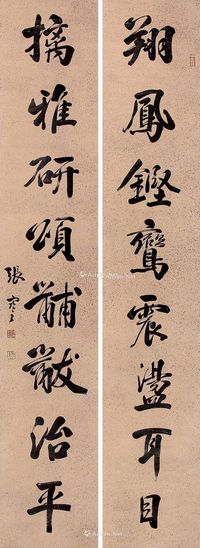 翔鳳鏗鸞震盪耳目
摛雅研頌黼黻治平
張謇